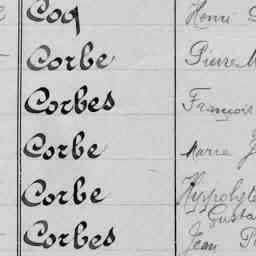 Coq Henri
Corbe Pierre M
Corbes François
Corbe Marie J
Corbe Hippolyte
Gusta
Corbes Jean